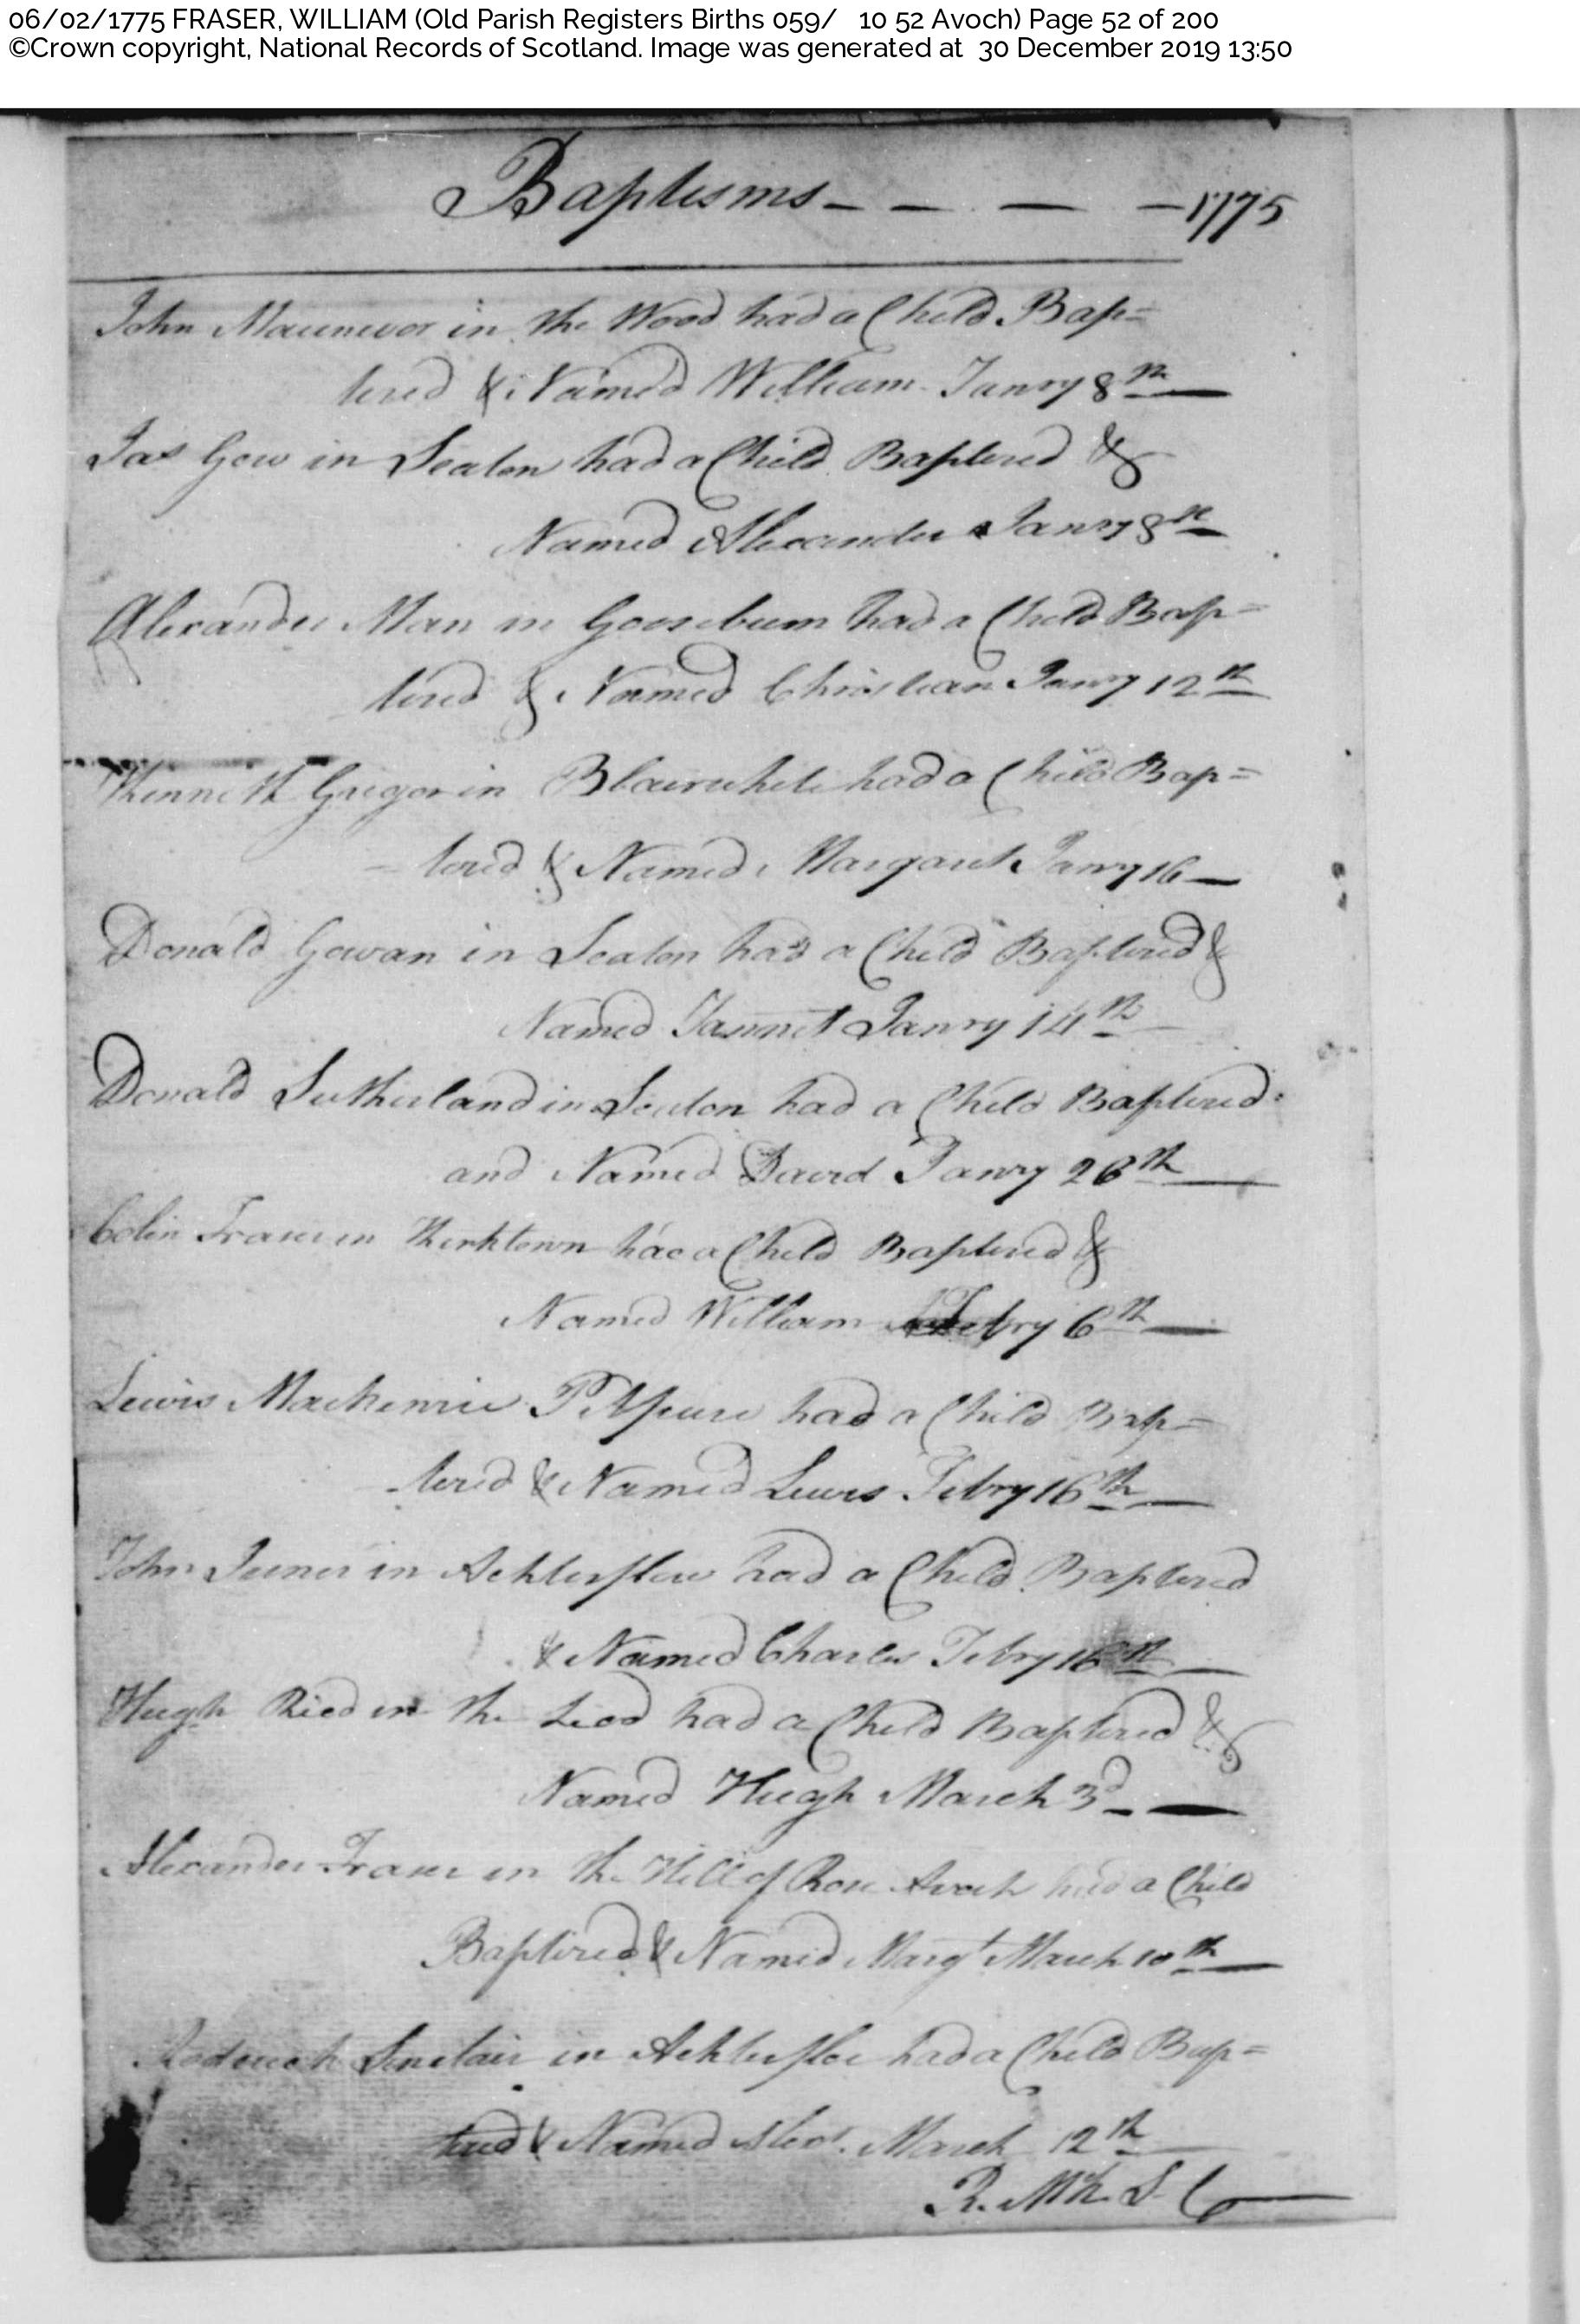 06/02/1775 FRASER, WILLIAM (Old Parish Registers Births 059/ 10 52 Avoch) Page 52 of 200
©Crown copyright, National Records of Scotland. Image was generated at 30 December 2019 13:50
Baptisms - - - - 1775
John in the Wood had a Child Bap=
tized & Named William Janry 8th
Jas Gow in Seaton had a Child Baptized &
Named Alexander Janry 8th
Alexander Man in Gooseburn had a Child Bap=
tized & Named Christian Janry 12th
Kenneth Grigor in Blairwhite had a Child Bap=
tized & Named Margaret Janry 16
Donald Gowan in Seaton had a Child Baptized &
Named Jannet Janry 14th
Donald Sutherland in Seaton had a Child Baptized
and Named David Janry 26th
Colin Fraser in Kirktown had a Child Baptized &
Named William Febry 6th
Lewis Mackenzie had a Child Bap=
tized & Named Lewis Febry 16th
John in had a Child Baptized
& Named Charles Febry 16th
Hugh Ried in the had a Child Baptized &
Named Hugh March 3d
Alexander Fraser in the Hill of Rose Avoch had a Child
Baptized & Named Margt March 10th
Roderick Sinclair in had a Child Bap=
tized & Named Alexr. March 12th
R. McK. S. C